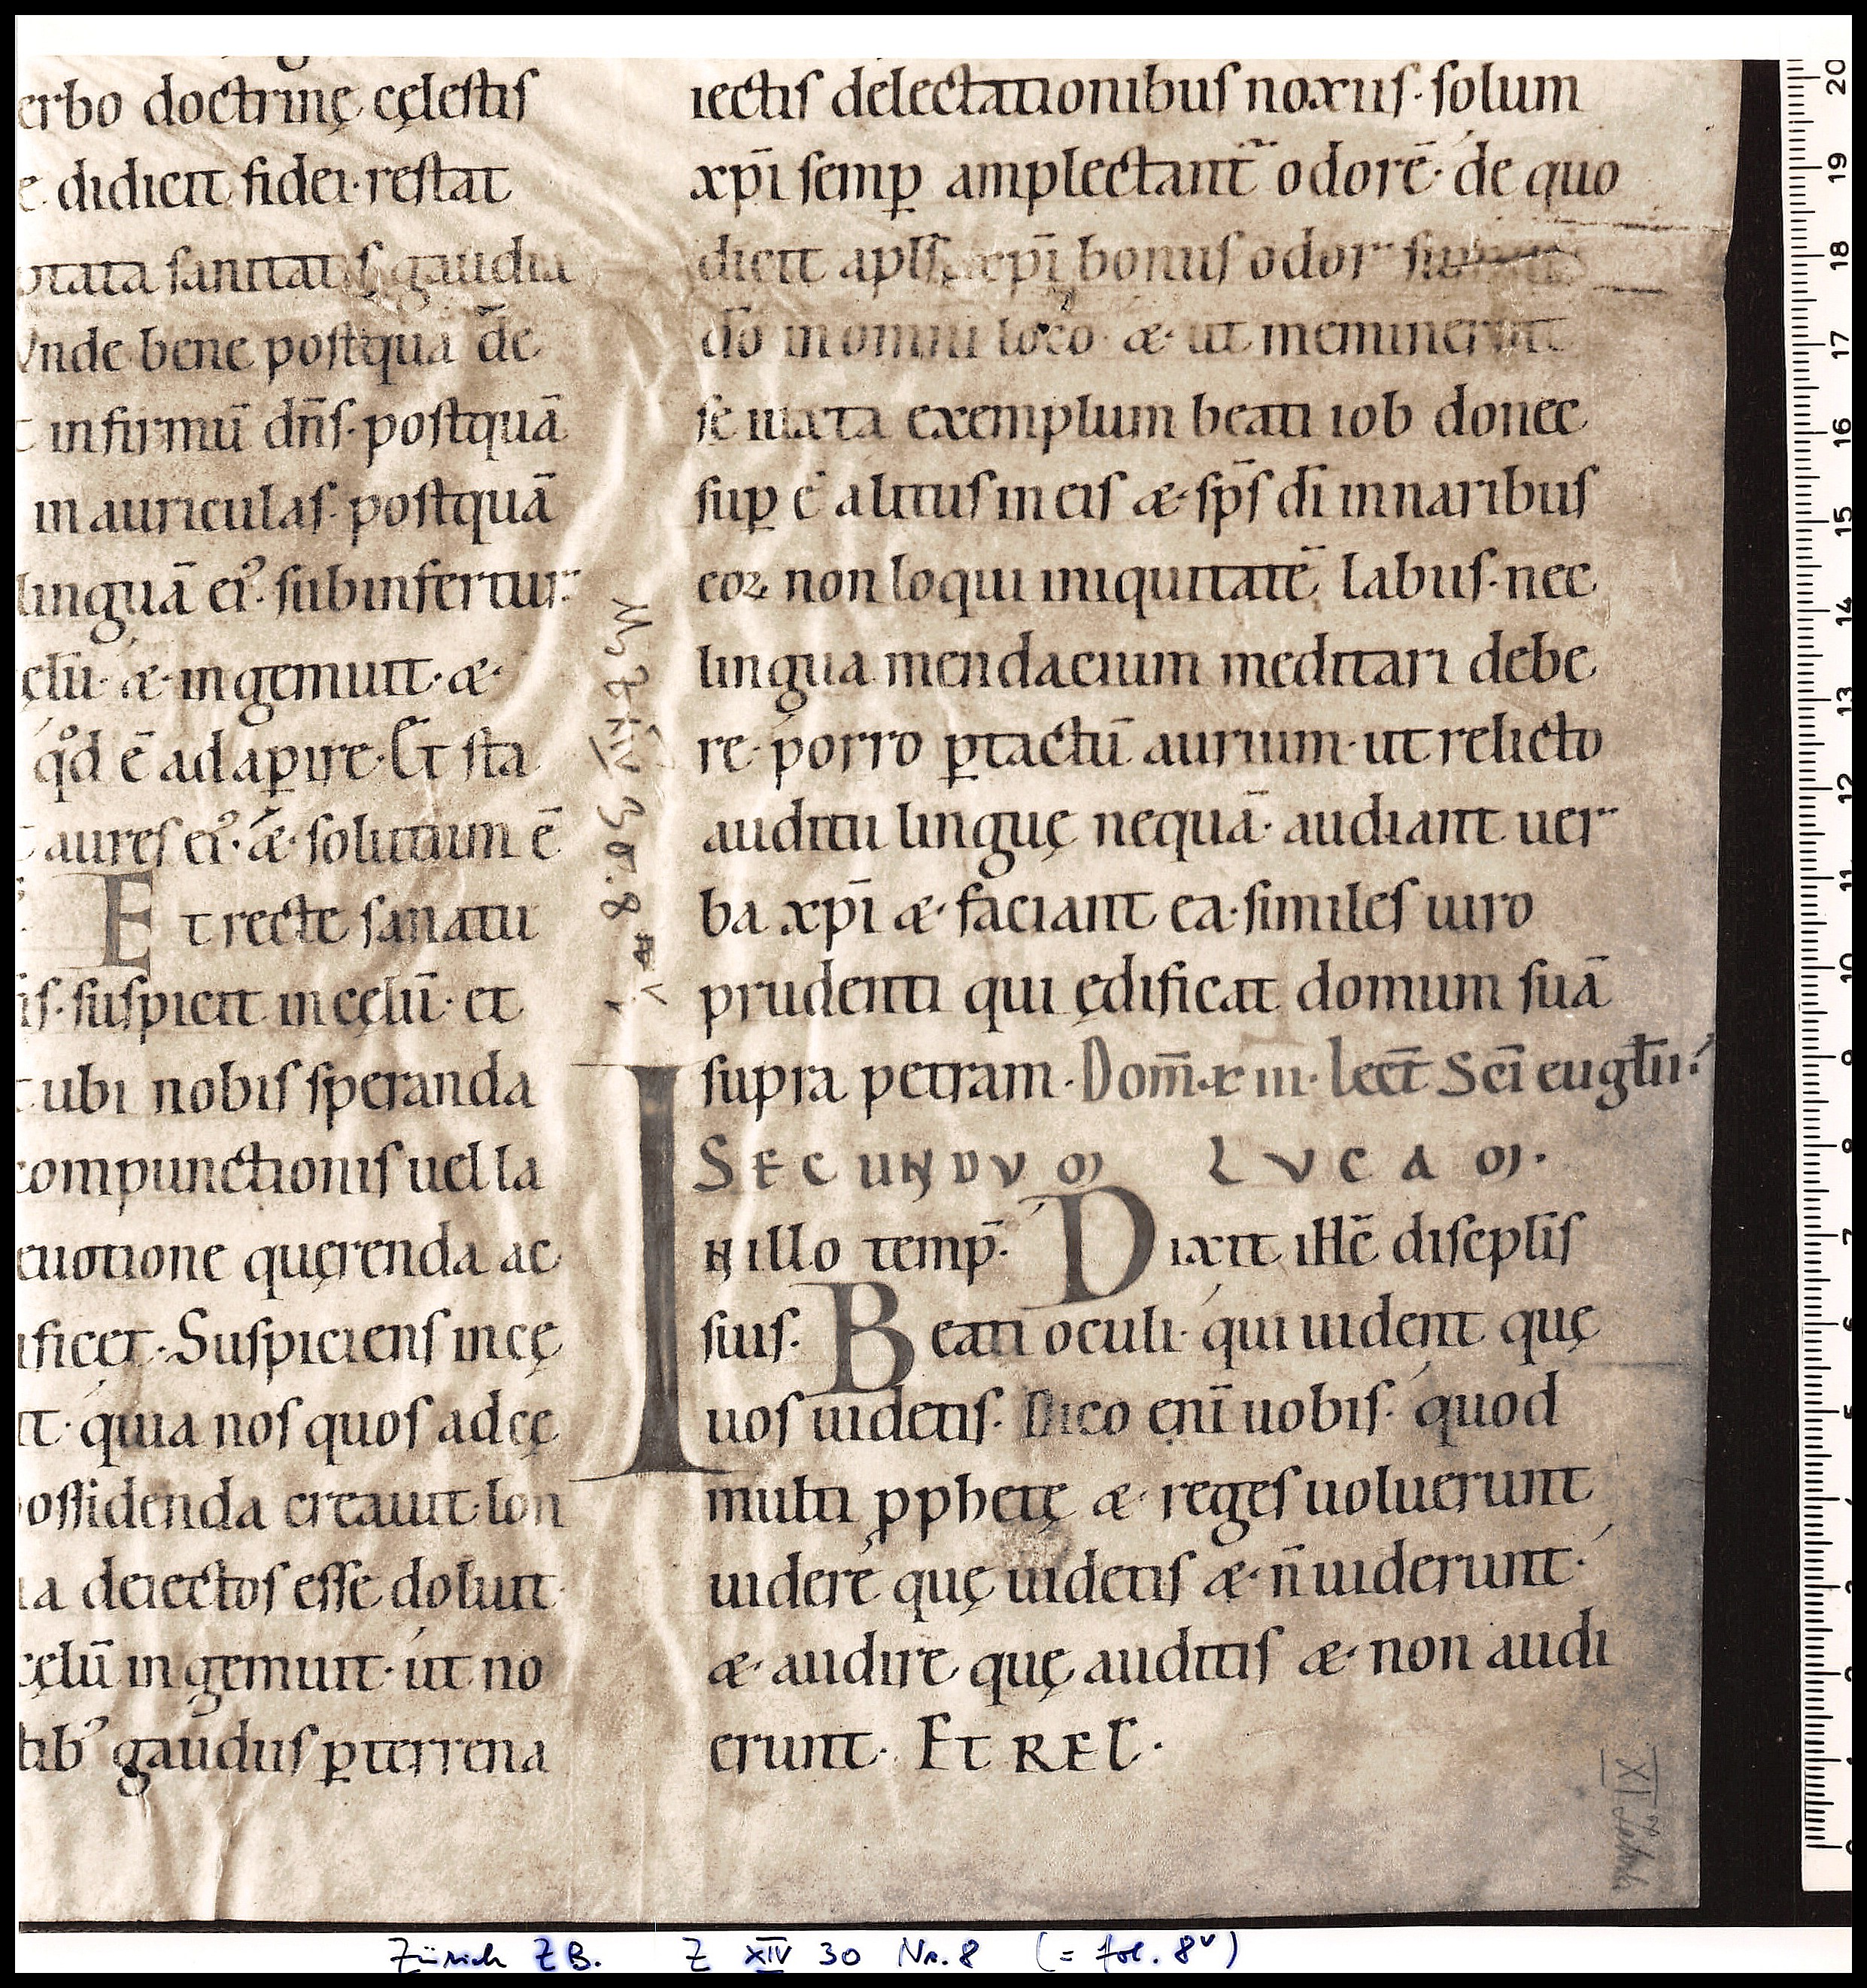 erbo doctrinę cęlestis
e didicit fidei· restat
ptata sanitatis gaudia
Vnde bene postquā de
infirmū dn̄s· postquā
in auriculas· postquā
linguā ei᾿· subinfertur
cęlū· æ· ingemuit· æ·
qd̊ ē adaꝑire· Et sta
aures ei᾿· æ· solutum ē
Et recte sanatu
is· suspicit in cęlū· et
ubi nobis speranda
compunctionis uel la
euotione quęrenda ac
ificet· Suspiciens in cę
it· quia nos quos ad cę
ossidenda creauit· lon
a deiectos esse doluit·
cęlū ingemuit· ut no
tib᾿ gaudiis ꝑ terrena
iectis delectationibus noxiis· solum
xp̄i semꝑ amplectant᷑ odorē· de quo
dicit apl̄s· xp̄i bonus odor
dō in omni loco· æ· ut meminerint
se iuxta exemplum beati iob donec
suꝑ ē alitus in eis æ· sp̄s dī in naribus
eoꝝ non loqui iniquitatē labiis· nec
lingua mendacium meditari debe
re· porro ꝑ tactū aurium· ut relicto
auditu linguę nequā· audiant uer
ba xp̄i æ· faciant ea· similes uiro
prudenti qui ędificat domum suā
supra petram· Dom̄· x iii· lect̄ sc̄i eugl̄ii·
SECUNDVM LVCAM·
IN illo temp̄· Dixit ihc̄ discipl̄is
suis· Beati oculi· qui uident quę
uos uidetis· Dico enī uobis· quod
multi ꝓphetę æ· reges uoluerunt
uidere quę uidetis æ· n̄ uiderunt·
æ· audire quę auditis æ· non audi
erunt· Et REL·
Ms Z XIV 30.8 v
XI. Jahrh
20
19
18
17
16
15
14
13
12
11
10
9
8
7
6
5
4
3
2
1
0
Zürich ZB. Z XIV 30 Nr. 8 (= fol. 8v)